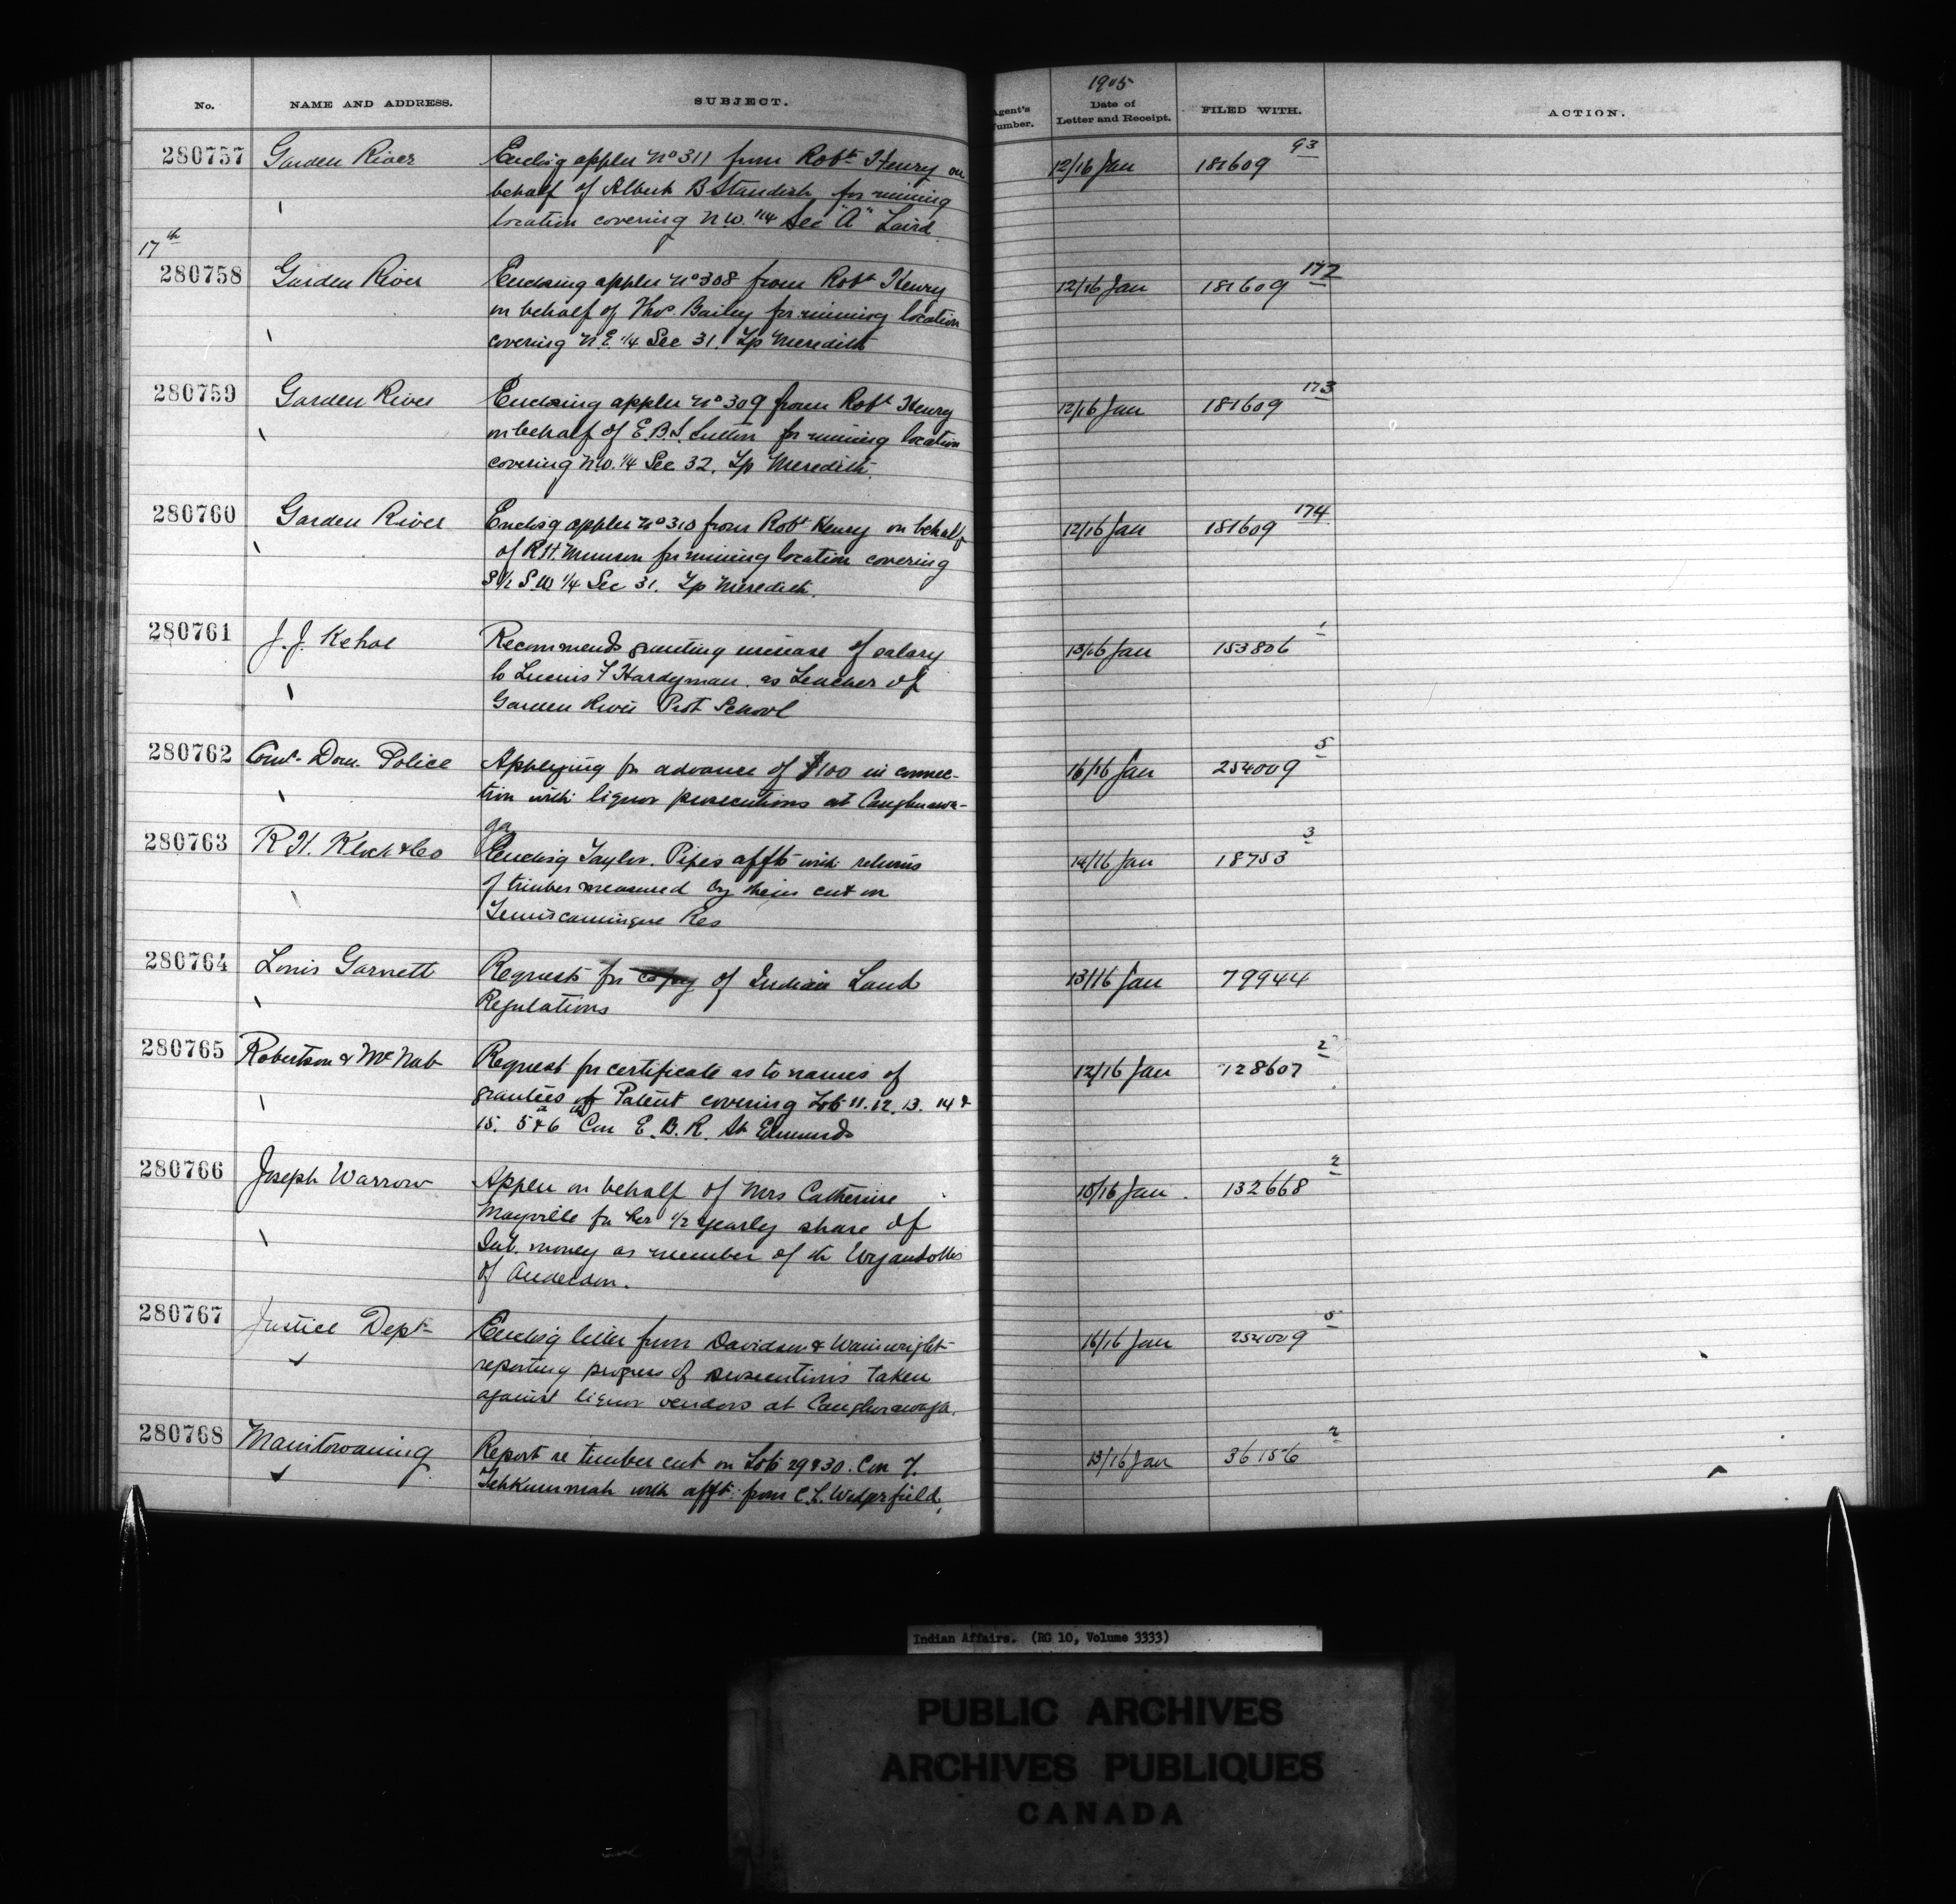 No. NAME AND ADDRESS. SUBJECT. Agent's Number. 1905 Date of Letter and Receipt. FILED WITH. ACTION.
280757 Garden River Enclosg applcn No 311 from Robt Henry on 12/16 Jan 181609 93
behalf of Albert B Standish for mining
location covering N.W. 1/4 Sec "A" Laird
17th
280758 Garden River Enclosing applcn No 308 from Robt Henry 12/16 Jan 181609 172
on behalf of Thos. Bailey for mining location
covering N.E. 1/4 Sec 31. Tp Meredith
280759 Garden River Enclosing applcn No 309 from Robt Henry 12/16 Jan 181609 173
on behalf of E.B.S. Sutton for mining location
covering N.W. 1/4 Sec 32. Tp Meredith.
280760 Garden River Enclosg applcn No 310 from Robt Henry on behalf 12/16 Jan 181609 174
of R.H. Munson for mining location covering
S 1/2 S.W 1/4 Sec 31. Tp Meredith.
280761 J. J. Kehoe Recommends granting increase of salary 13/16 Jan 153806 1
to Lucius F Hardyman as Teacher of
Garden River Prot School
280762 Comr. Dom. Police Applying for advance of $100 in connec- 16/16 Jan 254009 5
tion with liquor prosecutions at Caughnawa-
ga
280763 R H. Klock & Co Enclosg Taylor. Pipes affts with returns 14/16 Jan 18753 3
of timber measured by them cut on
Temiscamingue Res
280764 Louis Garnett Request for copy of Indian Land 13/16 Jan 79944
Regulations
280765 Robertson & McNab Request for certificate as to names of 12/16 Jan 128607 2
grantees of Patent covering Lots 11. 12. 13. 14 &
15. 5 & 6 Con E. B. R. St Edmunds
280766 Joseph Warrow Applcn on behalf of Mrs Catherine 10/16 Jan. 132668 2
Mayville for her 1/2 yearly share of
Int. money as member of the Wyandottes
of Anderdon.
280767 Justice Dept Enclosg letter from Davidson & Wainwright 16/16 Jan 254009 5
reporting progress of prosecutions taken
against liquor vendors at Caughnawaga.
280768 Manitowaning Report re timber cut on Lots 29 & 30. Con 7. 13/16 Jan 36156 2
Tehkummah with afft. from C.L. Wedgerfield,
Indian Affairs. (RG 10, Volume 3333)
PUBLIC ARCHIVES
ARCHIVES PUBLIQUES
CANADA